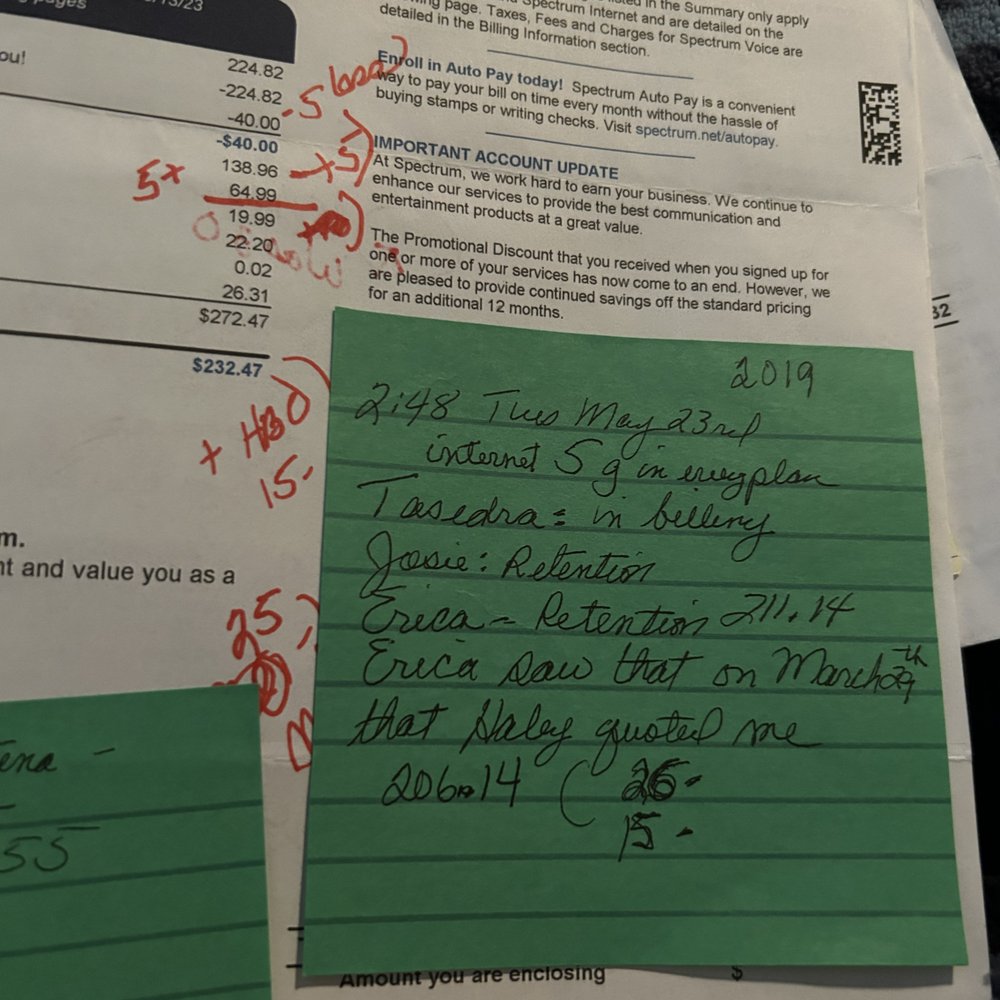 pages /13/23
ou!
224.82
-224.82
-40.00
-$40.00
138.96
64.99
19.99
22.20
0.02
26.31
$272.47
$232.47
-5
+5
5x
+ HBO
15-
m.
nt and value you as a
25
in the Summary only apply
ing page. Taxes, Fees and Charges for Spectrum Voice are
Spectrum Internet and are detailed on the
detailed in the Billing Information section.
Enroll in Auto Pay today! Spectrum Auto Pay is a convenient
way to pay your bill on time every month without the hassle of
buying stamps or writing checks. Visit spectrum.net/autopay.
IMPORTANT ACCOUNT UPDATE
At Spectrum, we work hard to earn your business. We continue to
enhance our services to provide the best communication and
entertainment products at a great value.
The Promotional Discount that you received when you signed up for
one or more of your services has now come to an end. However, we
are pleased to provide continued savings off the standard pricing
for an additional 12 months.
32
2019
2:48 Tues May 23rd
internet 5 g in every plan
Tasedra = in billing
Josie: Retention
Erica - Retention 211.14
Erica saw that on March 29th
that Haley quoted me
206.14 ( 26-
15 -
ena -
55
Amount you are enclosing $